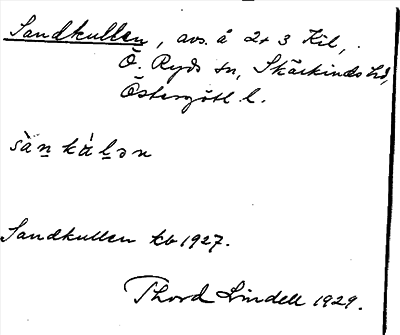 Sandkullen, avs. å 2+3 Kil,
Ö. Ryds sn, Skärkinds hd,
Östergötl l.
sà̀n̠ kα̊̀l̠ən
Sandkullen kb 1927.
Thord Lindell 1929.